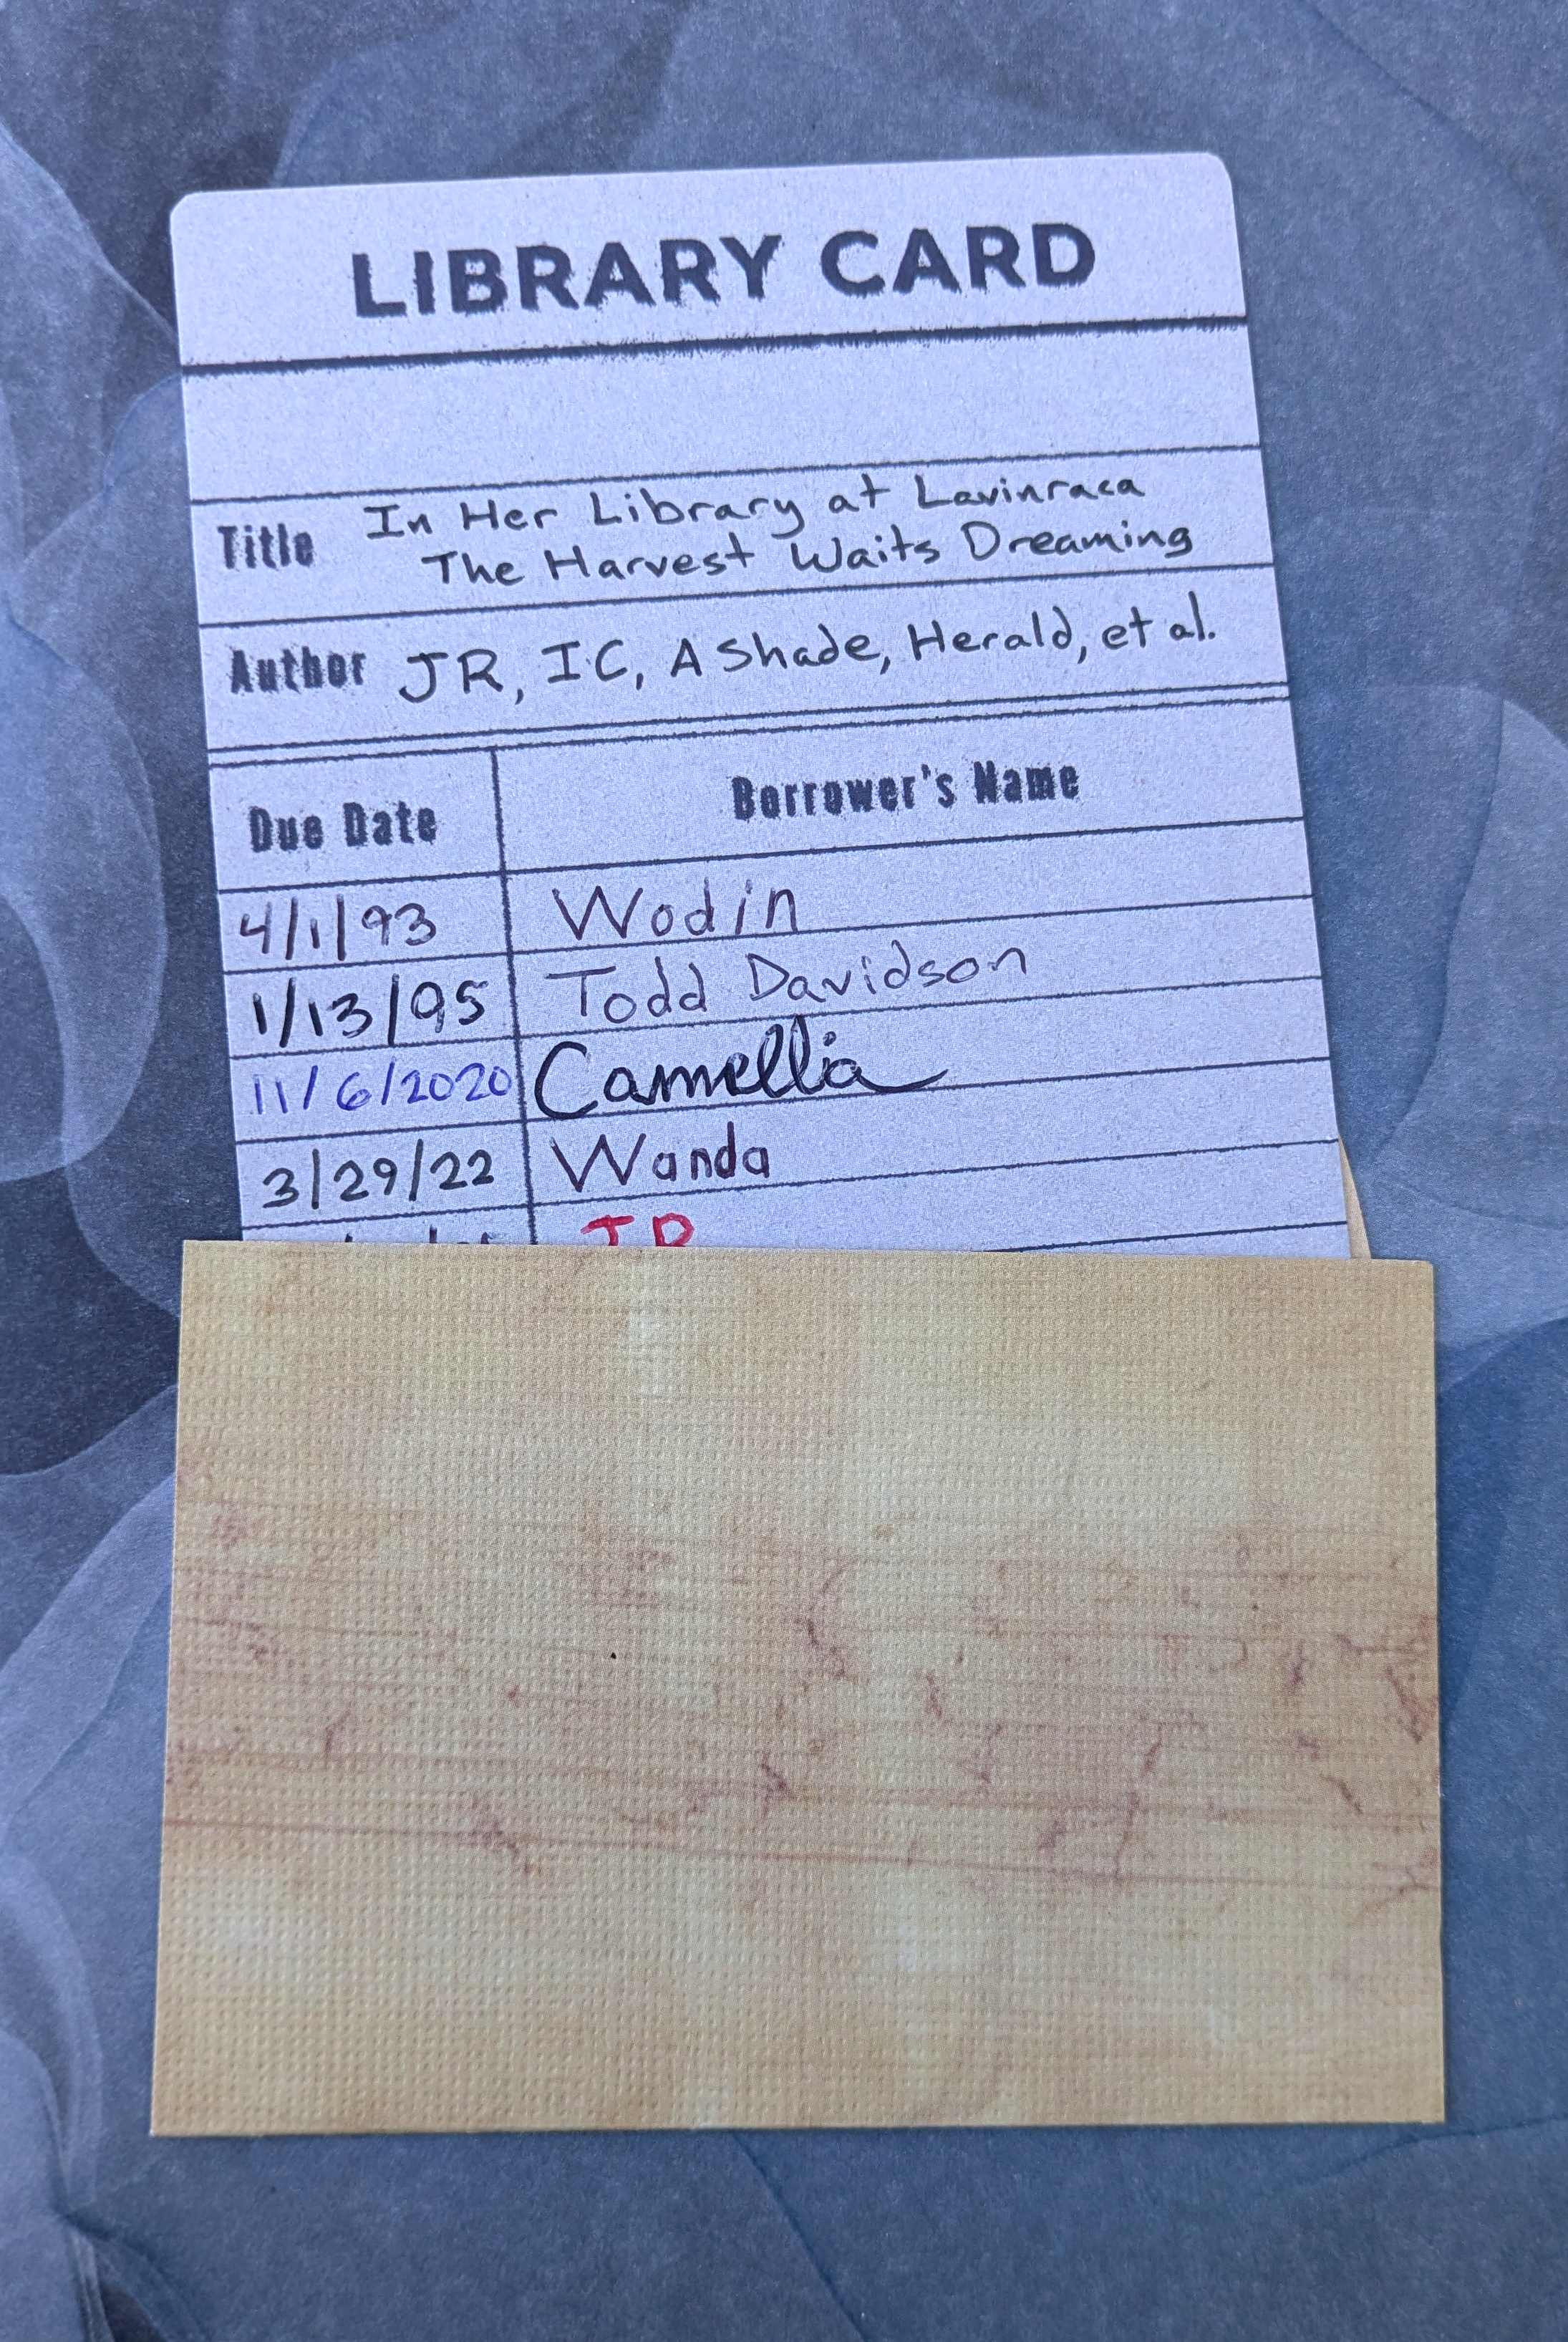 LIBRARY CARD
Title In Her Library at Lavinraca
The Harvest Waits Dreaming
Author JR, IC, A Shade, Herald, et al.
Due Date Borrower's Name
4/1/93 Wodin
1/13/95 Todd Davidson
11/6/2020 Camellia
3/29/22 Wanda
JR